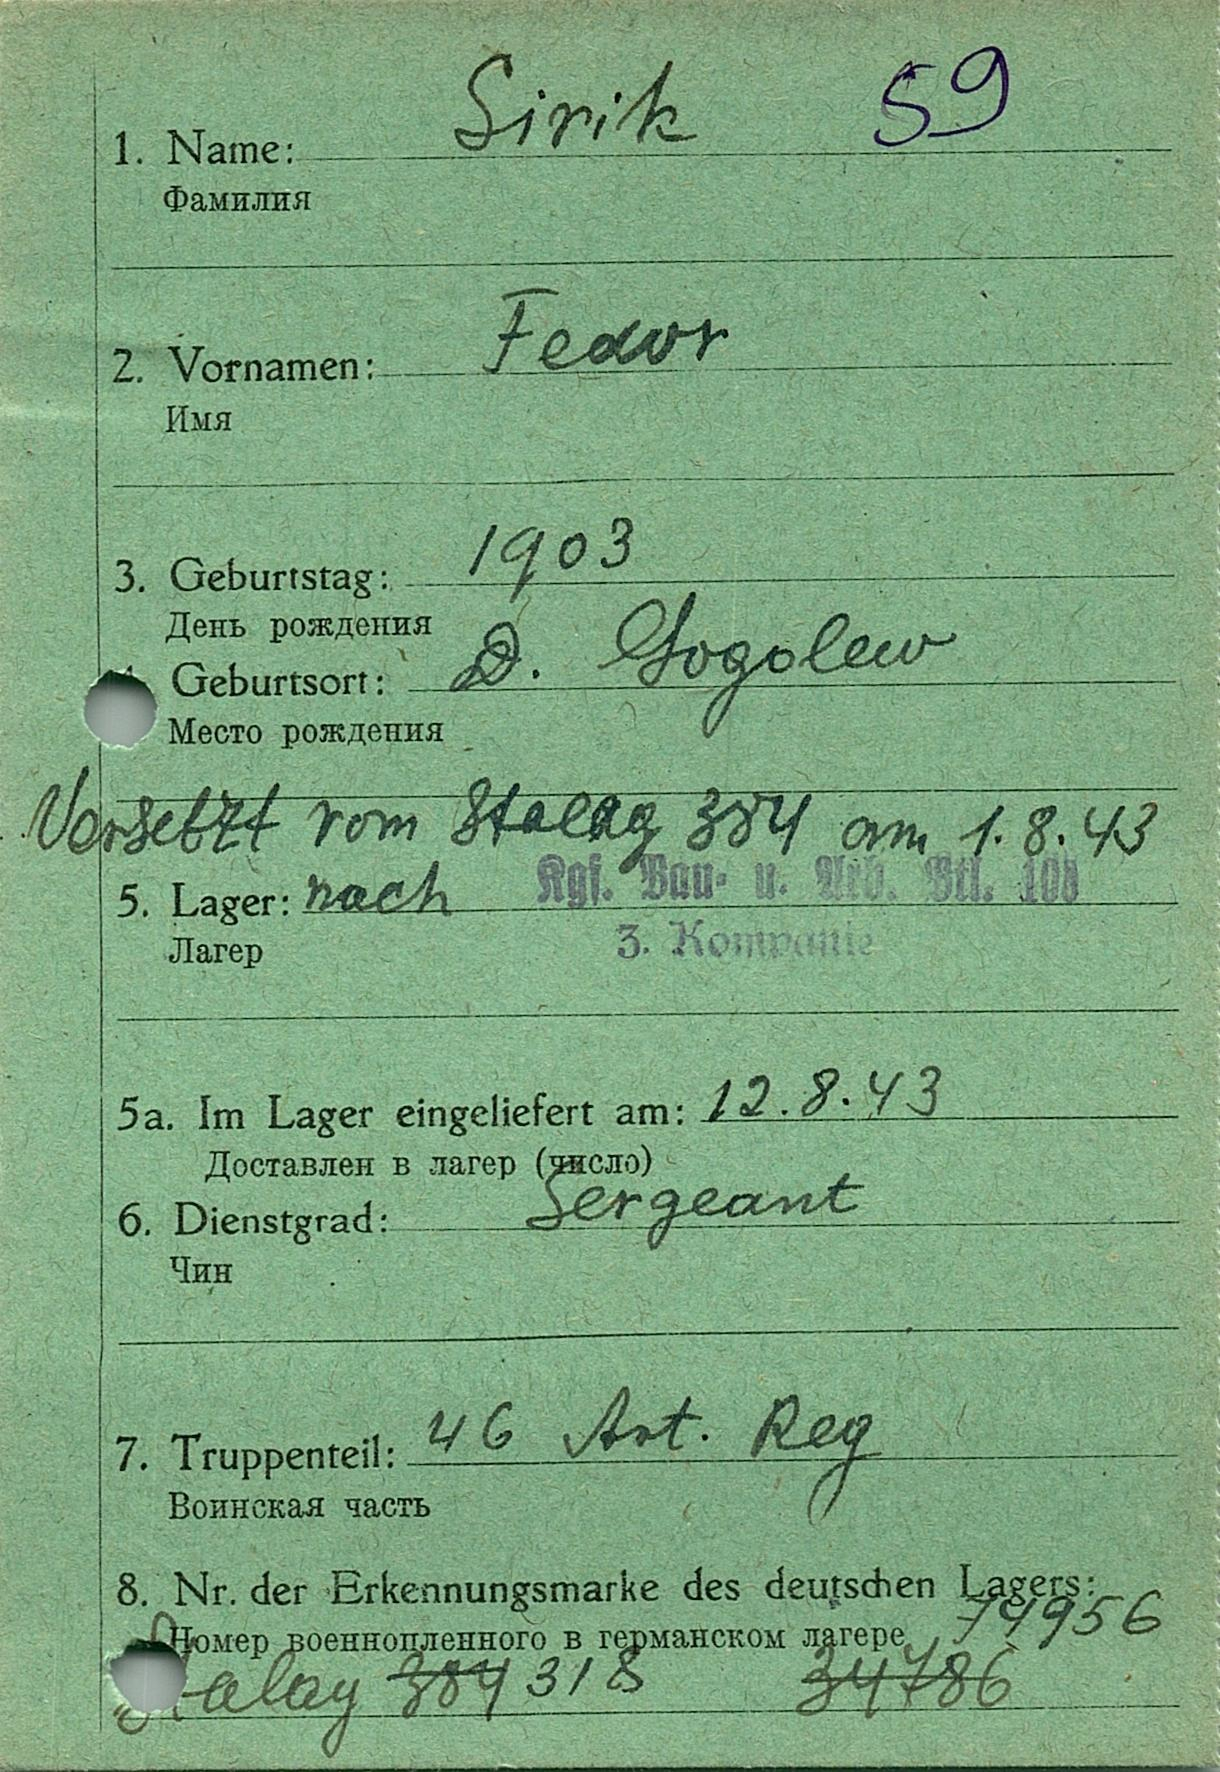 Sirik 59
1. Name:
Фамилия
Fedor
2. Vornamen:
Имя
1903
3. Geburtstag:
День рождения
D. Gogolew
Geburtsort:
Место рождения
Versetzt vom Stalag 384 am 1.8.43
5. Lager: nach Kgf. Bau- u. Arb. Btl.
Лагер
3. Kompanie
5a. Im Lager eingeliefert am: 12.8.43
Доставлен в лагер (число)
6. Dienstgrad: Sergeant
Чин
7. Truppenteil: 46 Art. Reg
Воинская часть
8. Nr. der Erkennungsmarke des deutschen Lagers:
Номер военнопленного в германском лагере 74956
Stalag 384 318 34786